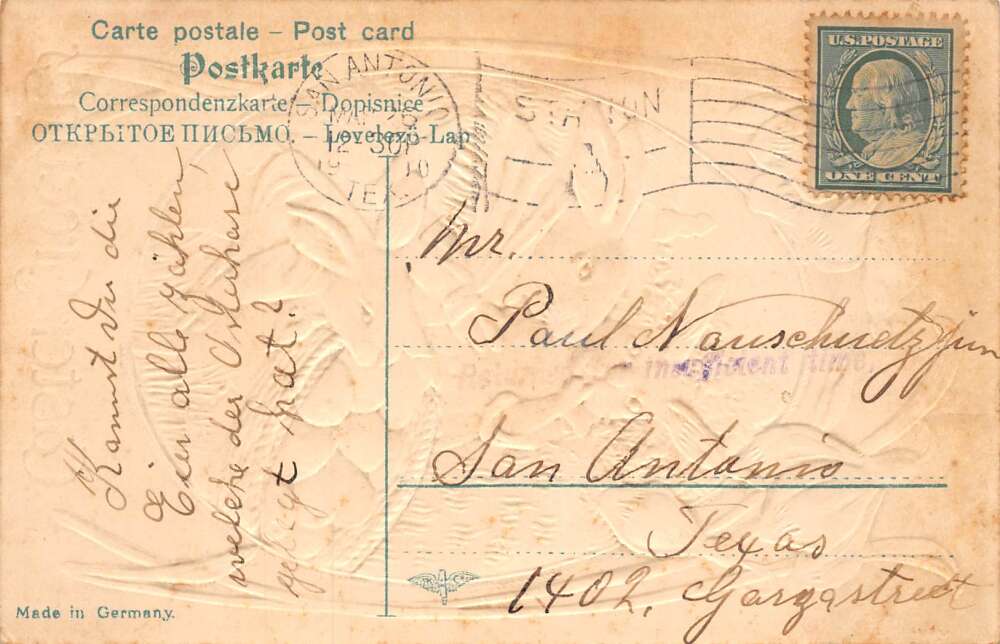 Carte postale – Post card
Postkarte
Correspondenzkarte – Dopisnice
ОТКРЫТОЕ ПИСЬМО. – Levelező-Lap
SAN ANTONIO
30
TEX.
STATION
U.S. POSTAGE
ONE CENT
Kannst Du die
Eier alle zählen,
welche der Osterhase
gelegt hat?
Mr.
Paul Nauschuetz jun
insufficient time.
San Antonio
Texas
1402, Garzastreet
Made in Germany.